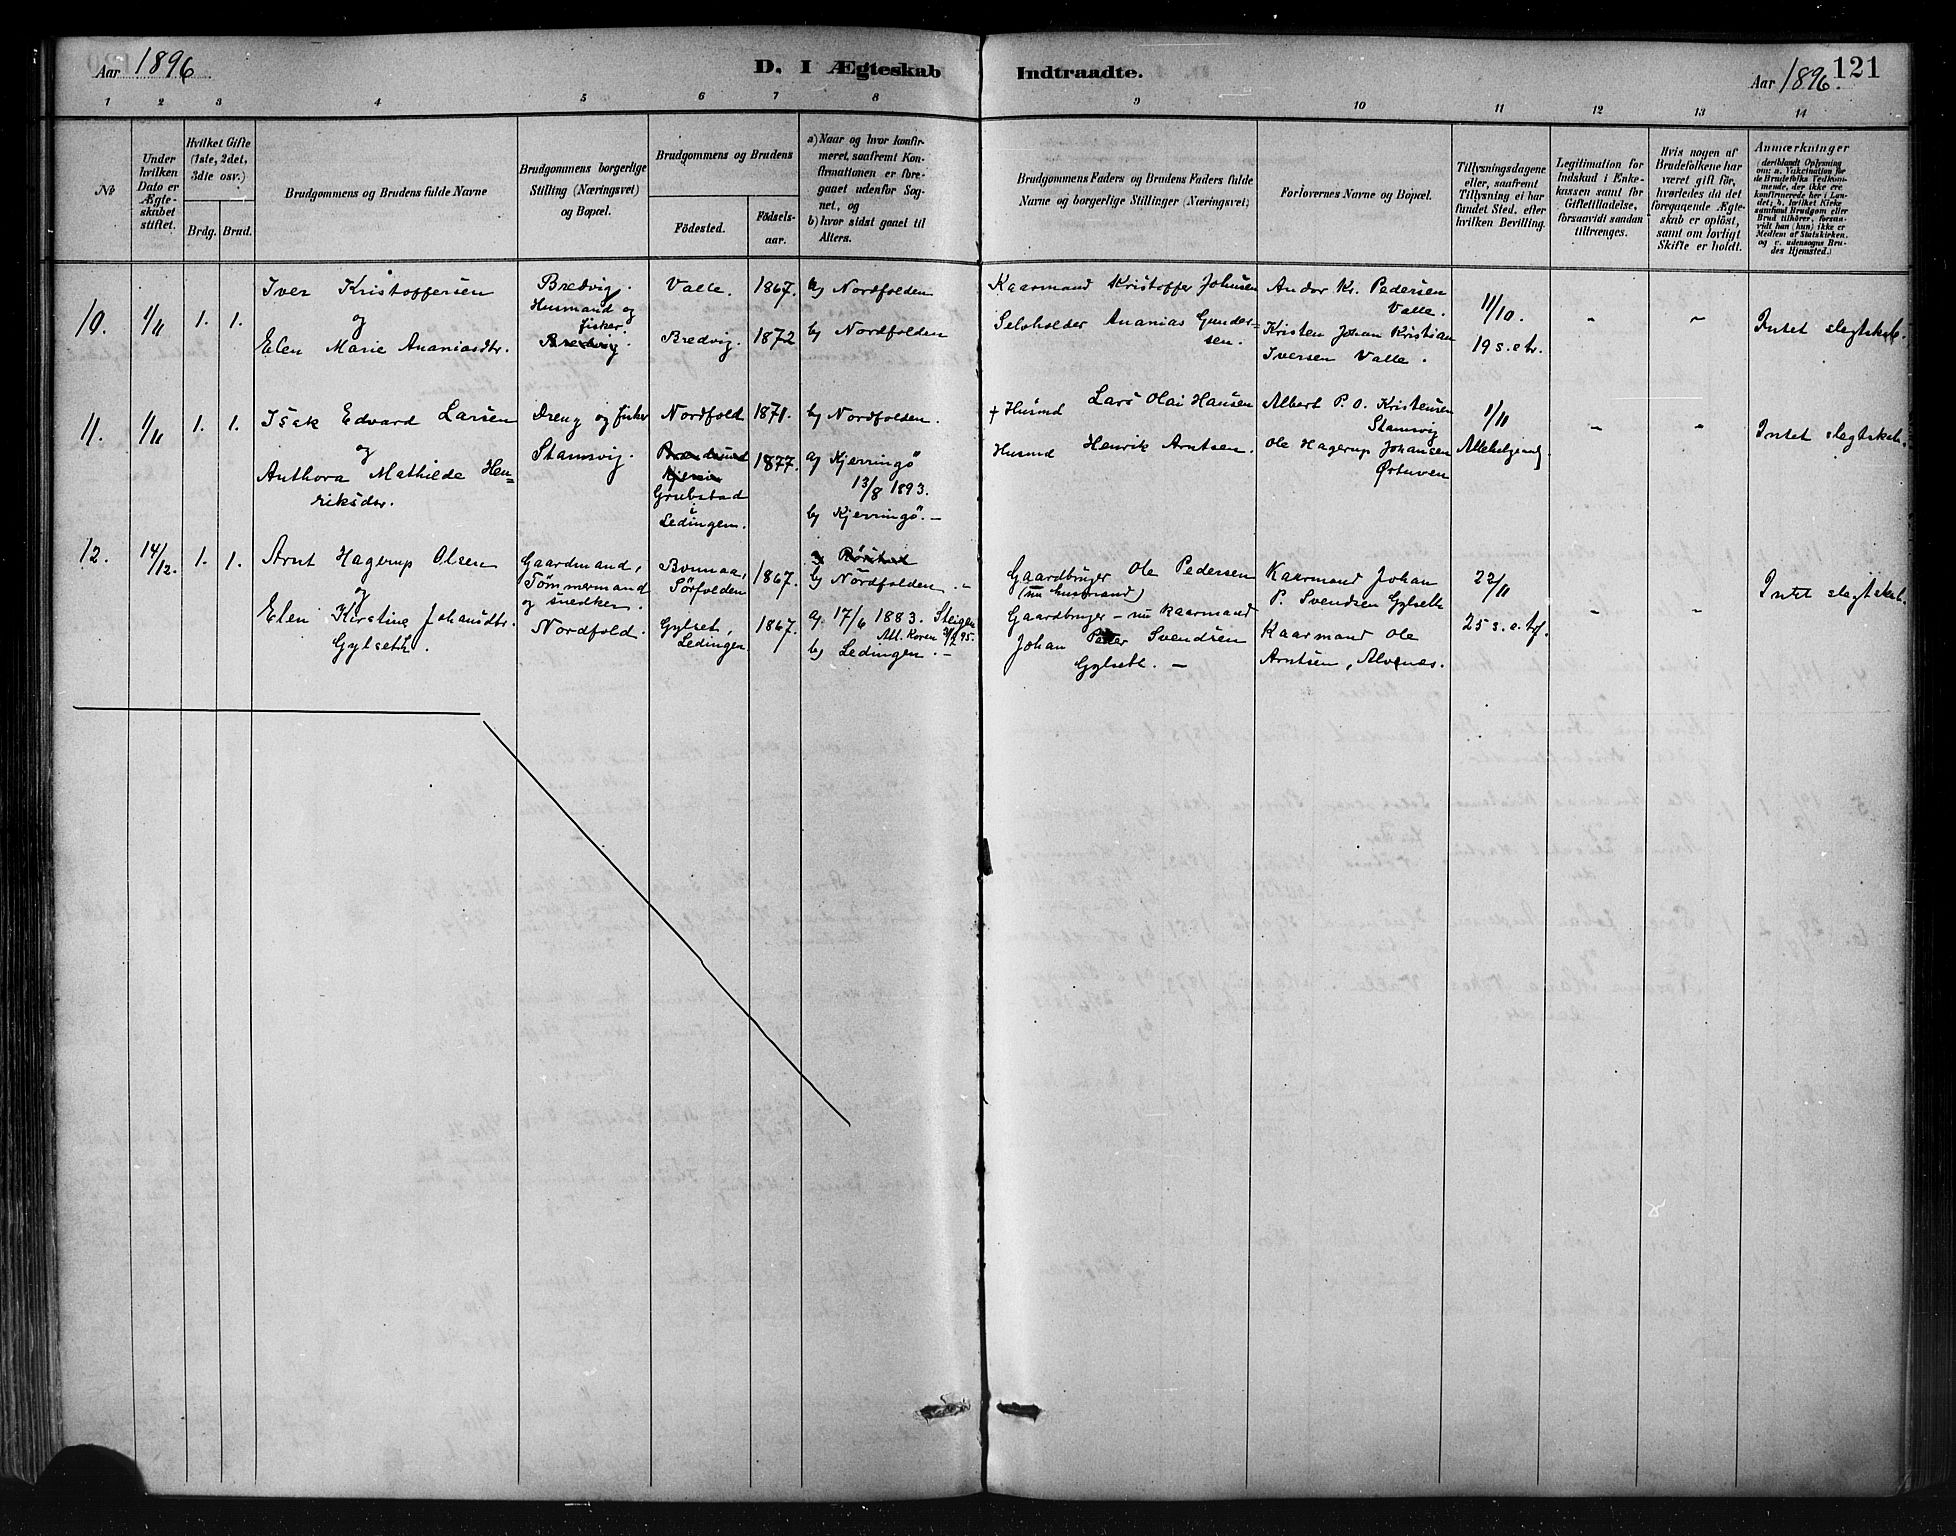 Aar 1896
D. I Ægteskab
Indtraadte.
Aar 1896.
121
1 2 3 4 5 6 7 8
9 10 11 12 13 14
No
Under hvilken Dato er Ægteskabet stiftet.
Hvilket Gifte (1ste, 2det, 3die osv.)
Brdg. Brud.
Brudgommens og Brudens fulde Navne
Brudgommens borgerlige Stilling (Næringsvei) og Bopæl.
Brudgommens og Brudens
Fødested.
Fødselsaar.
a) Naar og hvor konfirmeret, saafremt Konfirmationen er foregaaet udenfor Sognet, og
b) hvor sidst gaaet til Alters.
Brudgommens Faders og Brudens Faders fulde Navne og borgerlige Stillinger (Næringsvei)
Forlovernes Navne og Bopæl.
Tillysningsdagene eller, saafremt Tillysning ei har fundet Sted, efter hvilken Bevilling.
Legitimation for Indskud i Enkekassen samt for Giftetilladelse, forsaavidt saadan tiltrænges.
Hvis nogen af Brudefolkene har været gift før, hvorledes da det foregaaende Ægteskab er opløst, samt om lovligt Skifte er holdt.
Anmærkninger
(deriblandt Oplysning om: a. Vakcination for de Brudefolks Vedkommende, der ikke ere konfirmerede her i Landet; b. hvilket Kirkesamfund Brudgom eller Brud tilhører, forsaavidt han (hun) ikke er Medlem af Statskirken, og c. udensogns Brudes Hjemsted.)
10. 1/11 1. 1.
Iver Kristoffersen
og
Elen Marie Ananiasdtr.
Bredvig.
Husmand og
fisker.
Bredvig
Valle. 1867. a) Nordfolden
Bredvig. 1872 b) Nordfolden
Kaarmand Kristoffer Johnsen
Selvholder Ananias Gunder-
sen.
Andor Kr. Pedersen
Valle.
Kristen Johan Kristian
Iversen Valle.
11/10.
19 s. e tr.
" "
Intet slegtskab.
11. 1/11 1. 1.
Isak Edvard Larsen
og
Anthora Mathilde Hen=
riksdtr.
Dreng og fisker
Stamsvig.
Nordfold 1871. b) Nordfolden.
1877. a) Kjerringö
13/8 1893.
Grubstad
Ledingen. b) Kjerringö. –
+ Husmd Lars Olai Hansen
Husmd Henrik Arntsen.
Albert P. O. Kristensen
Stamsvig
Ole Hagerup Johansen
Ørtuven
1/11
" "
Intet slegtskab.
12. 14/12. 1. 1.
Arnt Hagerup Olsen
og
Elen Kirstine Johansdtr.
Gylseth.
Gaardmand,
Tømmermand
og snedker.
Nordfold.
Sörfolden 1867.
b) Nordfolden. –
Gylset, Ledingen 1867.
a) 17/6 1883. Steigen
b) Ledingen. –
Gaardbruger Ole Pedersen
(nu husmand)
Gaardbruger – nu kaarmand
Johan Peder Svendsen
Gylseth. –
Kaarmand Johan
P. Svendsen Gylseth
Kaarmand Ole
Arntsen, Alvenes.
22/11
25 s. e. trf.
" "
Intet slegtskab.